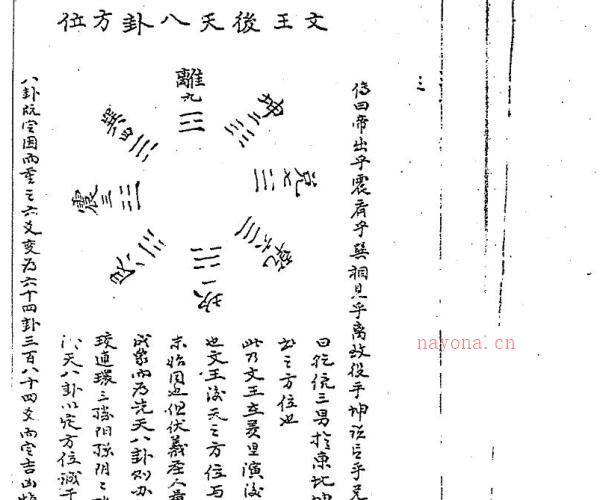 三
文王後天八卦方位
離九
坤二
兌七
乾六
坎一
艮八
震三
巽四
傳曰帝出乎震齊乎巽相見乎離致役乎坤說言乎兌
曰乾統三男於東北坤
之方位也
此乃文王立羑里演後
也文王後天之方位与
未始同也但伏羲聖人
成象而為先天八卦則亦
環三
天八卦以定方位誠
八卦既定因而重之六爻變為六十四卦三百八十四爻而定吉凶
nayona.cn